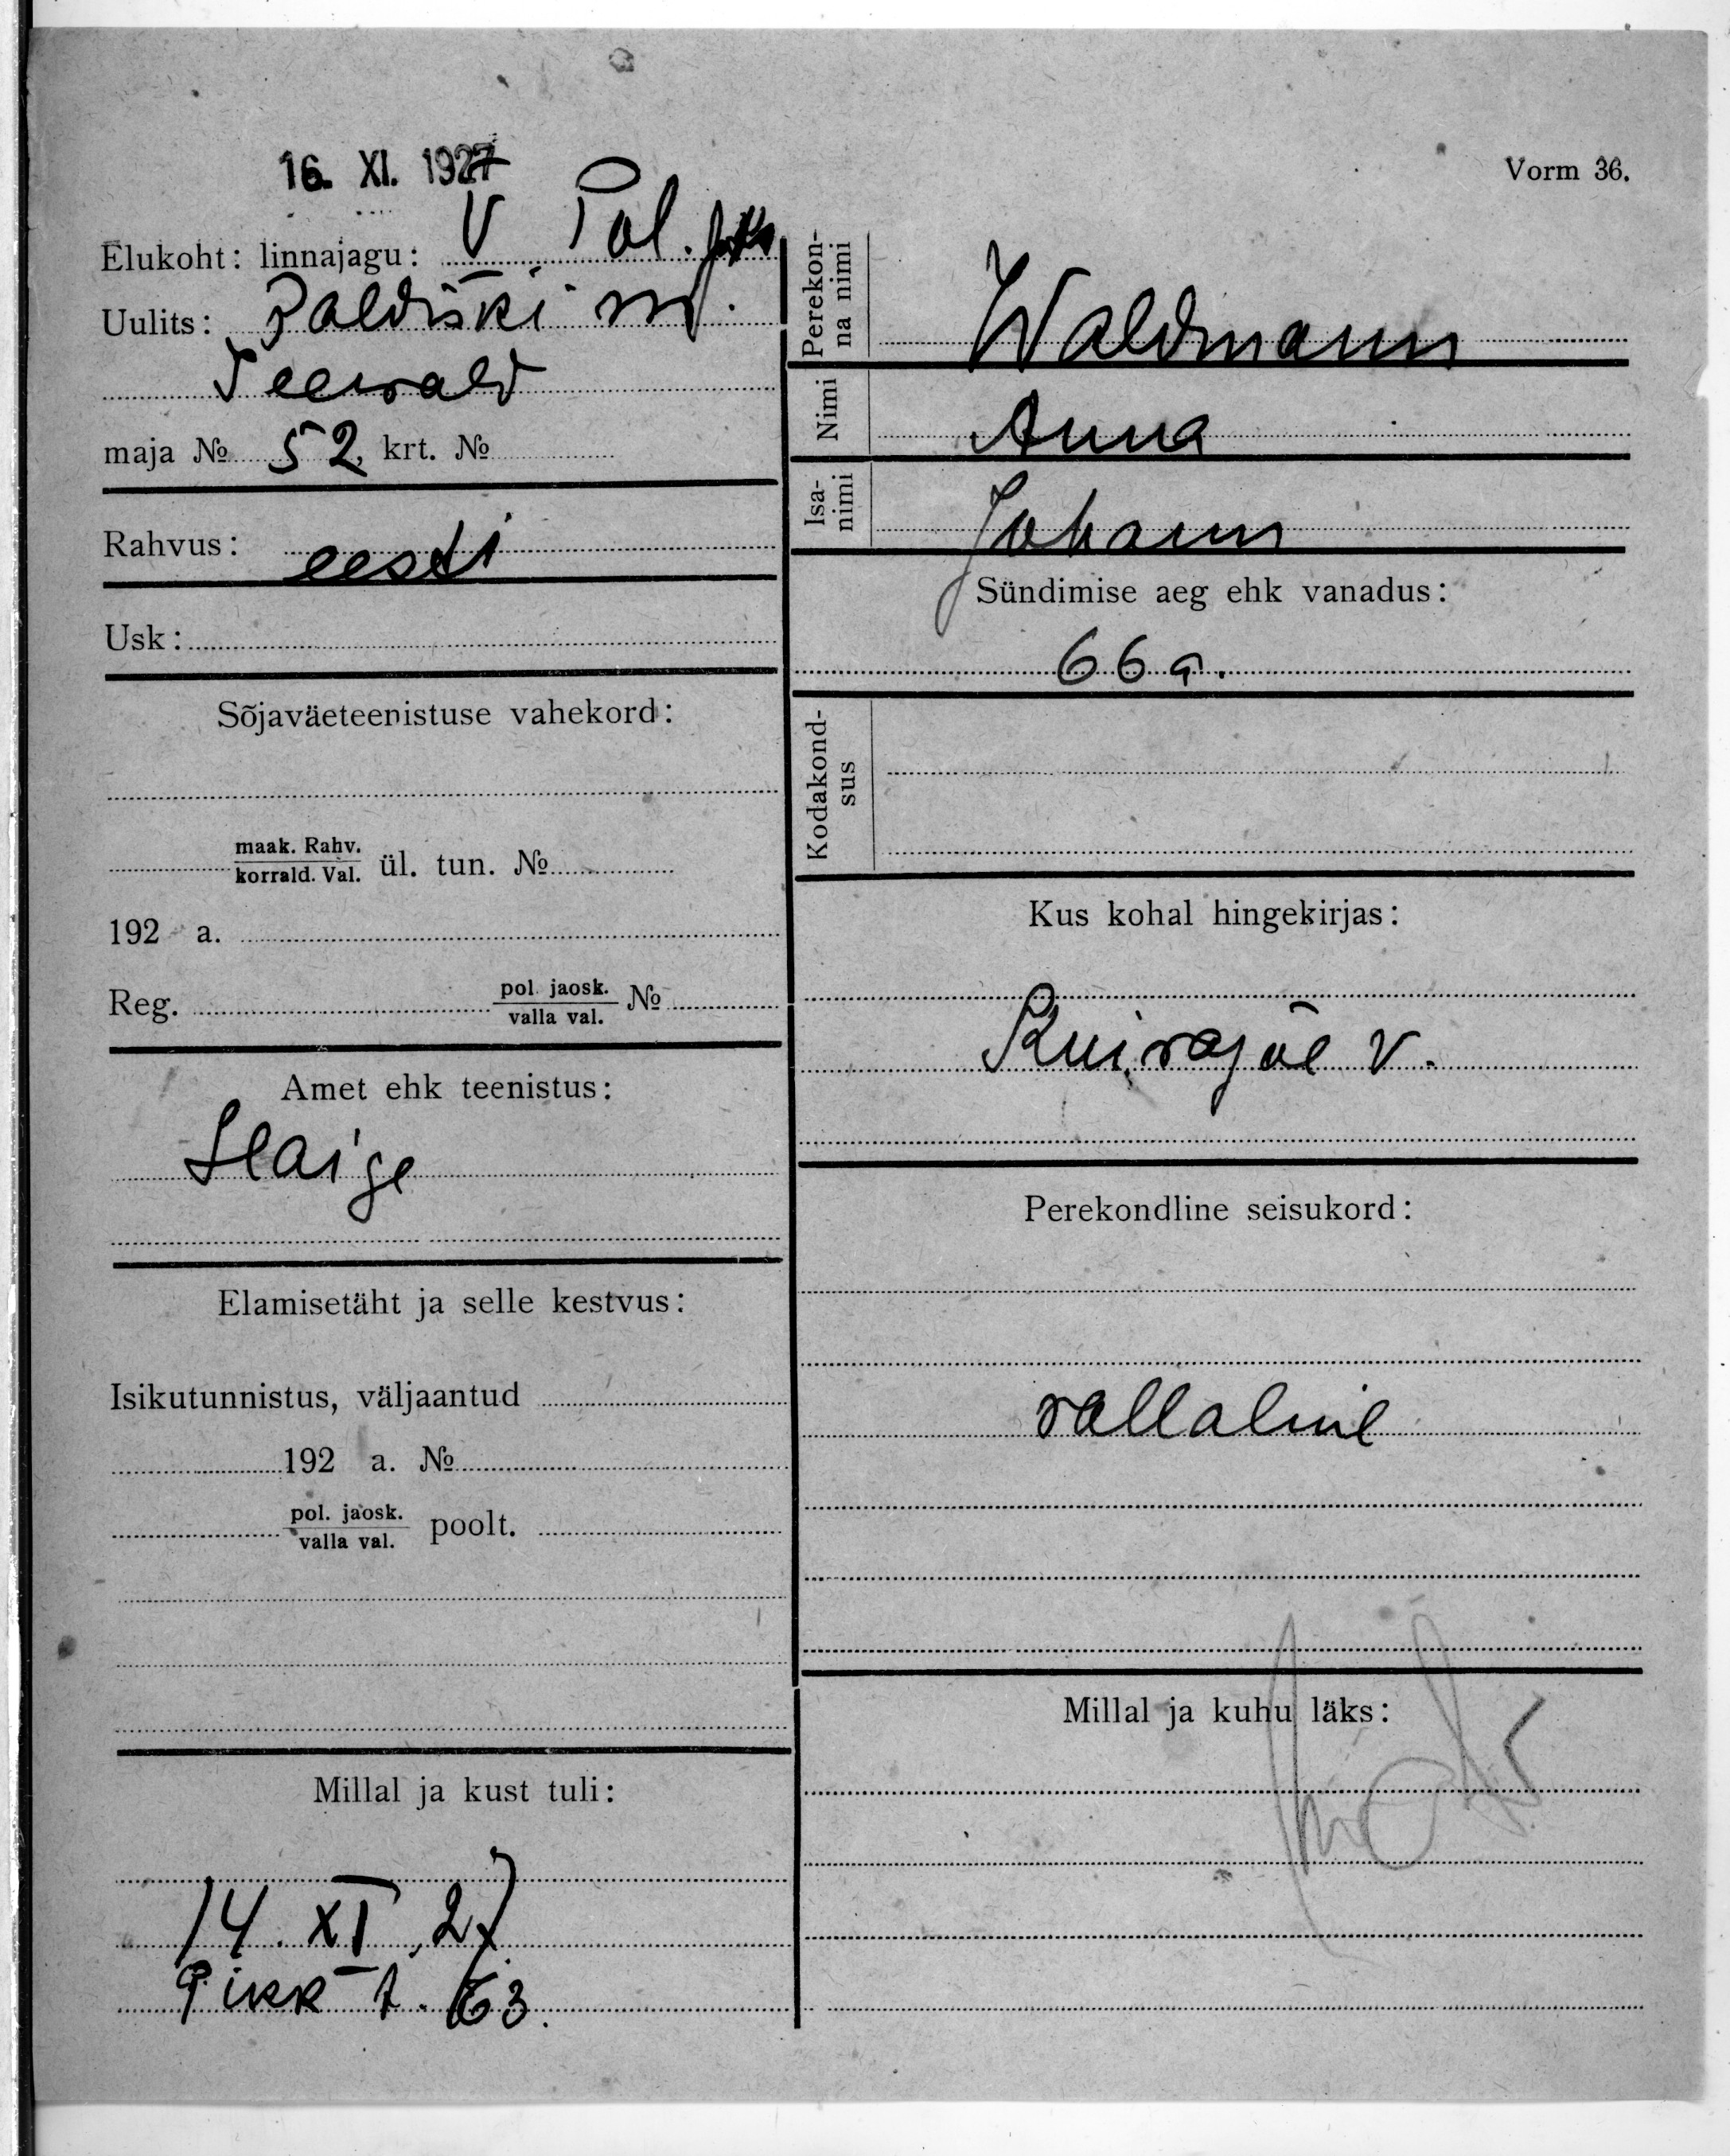 16. XI. 1927
Vorm 36.
Elukoht: linnajagu: V Pol. jsk
Uulits: Paldiski m.
Seewald
maja № 52, krt. №
Rahvus: eesti
Usk:
Sõjaväeteenistuse vahekord:
maak. Rahv.
korrald. Val. ül. tun. №
192 a.
Reg. pol. jaosk.
valla val. №
Amet ehk teenistus:
Haige
Elamisetäht ja selle kestvus:
Isikutunnistus, väljaantud
192 a. №
pol. jaosk.
valla val. poolt.
Millal ja kust tuli:
14. XI. 27
Pikk t. 63.
Perekon-
na nimi Waldmann
Nimi Anna
Isa-
nimi Johann
Sündimise aeg ehk vanadus:
66 a.
Kodakond-
sus
Kus kohal hingekirjas:
Kuivajõe v.
Perekondline seisukord:
vallaline
Millal ja kuhu läks: